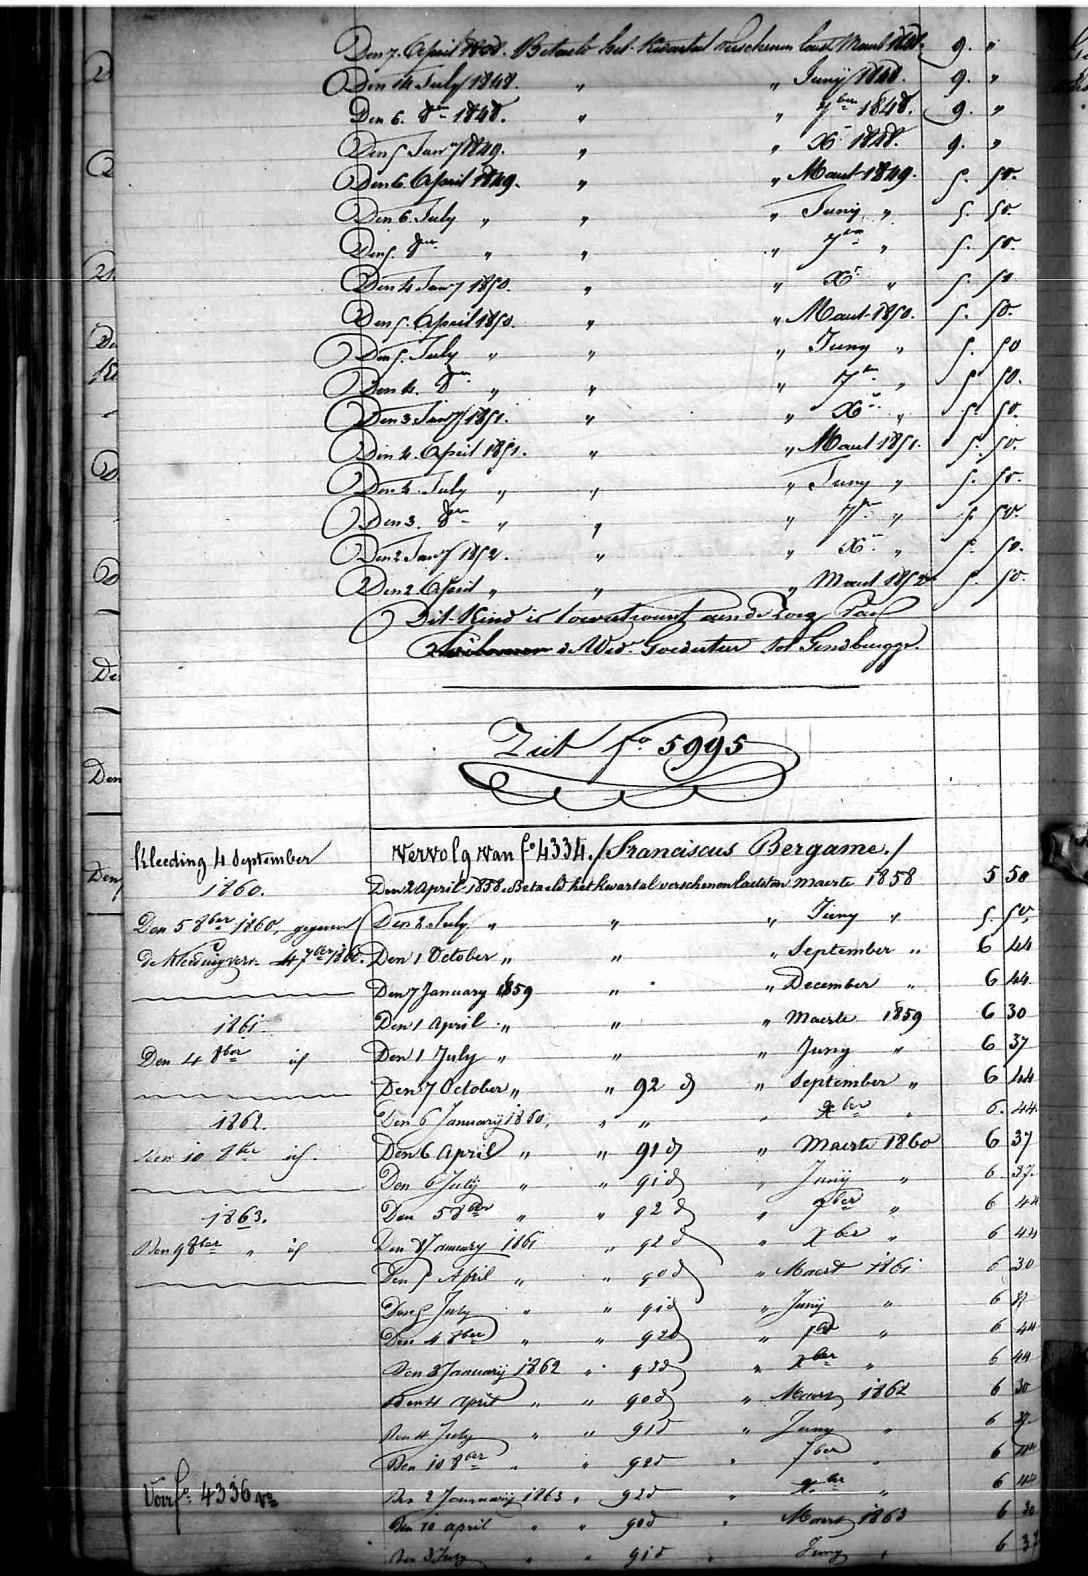 Den 7. April 1848. Betaeld het kwartael verschenen laest. Maert 1848. 9. "
Den 14 July 1848. " " Junij 1848. 9. "
Den 6. 8ber 1848. " " 7ber 1848. 9. "
Den 5 Jany 1849. " " Xr 1848. 9. "
Den 6. April 1849. " " Maert 1849. 5. 50.
Den 6. July " " " Juny " 5. 50.
Den 5. 8ber " " " 7ber " 5. 50.
Den 4 Jany 1850. " " Xr " 5. 50
Den 5. April 1850. " " Maert 1850. 5. 50.
Den 5. July " " " Juny " 5. 50
Den 4. 8ber " " " 7ber " 5. 50.
Den 3 Jany 1851. " " Xr " 5. 50.
Den 4. April 1851. " " Maert 1851. 5. 50.
Den 4. July " " " Juny " 5. 50.
Den 3. 8ber " " " 7ber " 5. 50.
Den 2 Jany 1852. " " Xr " 5. 50.
Den 2. April " " " Maert 1852 5. 50.
Dit Kind is toevertrouwt aen de Zorg van
de Wed. Goedertier tot Gendbrugge.
Ziet fo 5995
Vervolg van fo 4334. / Franciscus Bergame. /
Den 2 April 1858. Betaeld het kwartal verschenen laetsten Maerte 1858 5 50
Den 2 July. " " " Juny " 5. 50.
Den 1 October " " " September " 6 44
Den 7 January 1859 " " December " 6 44
Den 1 April " " " Maerte 1859 6 30
Den 1 July " " " Juny " 6 37
Den 7 October " " 92 d " September " 6 44
Den 6 January 1860. " " " Xber " 6. 44
Den 6 April " " 91 d " Maerte 1860 6 37
Den 6 July " " 91 d " Junij " 6 37.
Den 5 8ber " " 92 d " 7ber " 6 44
Den 8 January 1861 " 92 d " Xber " 6 44
Den 5 April " " 90 d " Maert 1861 6 30
Den 5 July " " 91 d " Junij " 6 37
Den 4 8ber " " 92 d " 7ber " 6 44
Den 3 Januarij 1862 " 92 d " Xber " 6 44
Den 4 april " " 90 d " Maert 1862 6 30
Den 4 July " " 91 d " Juny " 6 37
Den 10 8ber " " 92 d " 7ber " 6 44
Den 2 Januarij 1863 " 92 d " Xber " 6 44
Den 10 april " " 90 d " Maert 1863 6 30
Den 3 July " " 91 d " Juny " 6 37
Kleeding 4 September
1860.
Den 5 8ber 1860, gegeven
de Kleeding verv. 4 7ber 1860.
1861.
Den 4 8ber id
1862.
Den 10 8ber id.
1863.
Den 9 8ber " id
Voir fo 4336 vo